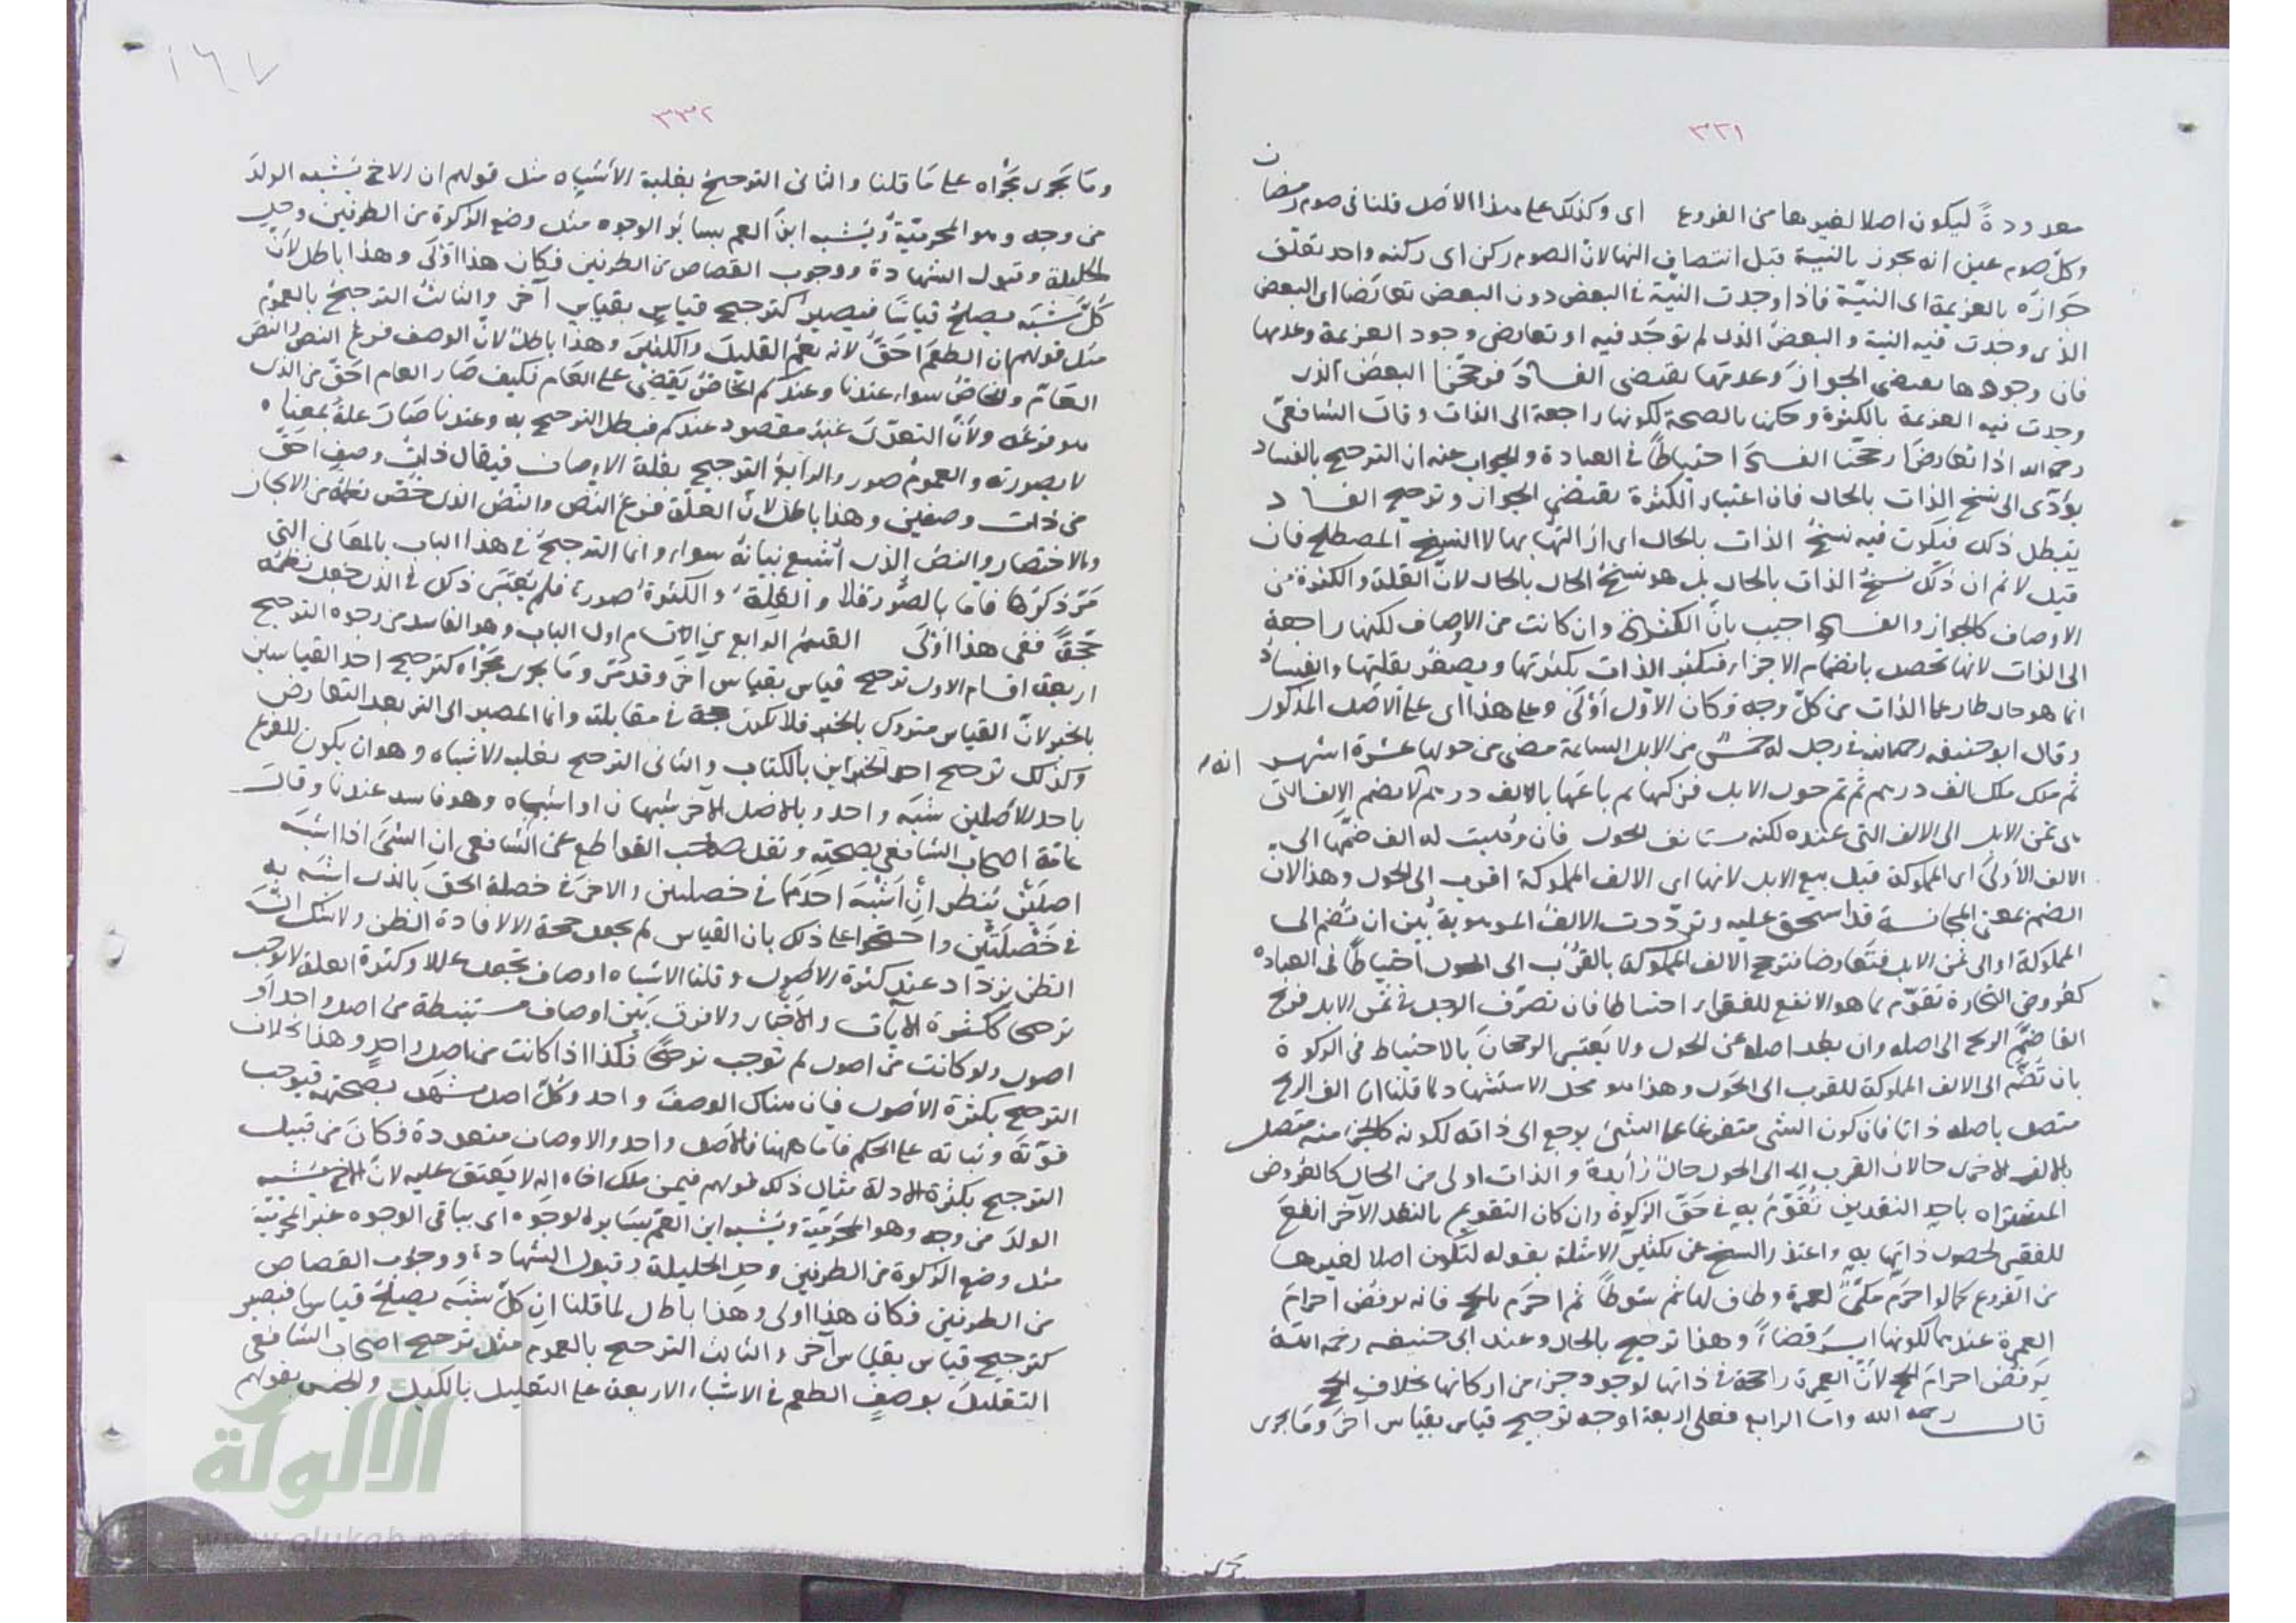 ٣٣١
معدودةً ليكون اصلا لغيرها من الفروع اى وكذلك على هذا الاصل قلنا فى صوم رمضان
وكل صوم عين انه يجوز بالنية قبل انتصاف النهار لانّ الصوم ركن اى ركنه واحد تعلق
جوازه بالعزيمة اى النيّة فاذا وجدت النيّة فى البعض دون البعض تعارضا اى البعض
الذى وجدت فيه النية والبعض الذى لم توجد فيه او تعارض وجود العزيمة وعدمها
فان وجودها يقتضى الجواز وعدمها يقتضى الفساد فرجّحنا البعض الذى
وجدت فيه العزيمة بالكثرة وحكمنا بالصحة لكونها راجعة الى الذات وقال الشافعىّ
رحمه الله اذا تعارضا رجّحنا الفساد احتياطًا فى العبادة والجواب عنه ان الترجيح بالفساد
يؤدّى الى نسخ الذات بالحال فان اعتبار الكثرة يقتضى الجواز وترجيح الفساد
يبطل ذلك فيكون فيه نسخ الذات بالحال اى ازالتها بها لا النسخ المصطلح فان
قيل لا نم ان ذلك نسخ الذات بالحال بل هو نسخ الحال بالحال لانّ القلة والكثرة من
الاوصاف كالجواز والفساد اجيب بانّ الكثرة وان كانت من الاوصاف لكنها راجعة
الى الذات لانها تحصل بانضمام الاجزاء فتكثر الذات بكثرتها ويصغر بقلتها والفساد
انما هو حال طار على الذات من كلّ وجه فكان الاوّل أوْلى وعلى هذا اى على الاصل المذكور
وقال ابو حنيفه رحمه الله فى رجل له خمسٌ من الابل السائمة مضى من حولها عشرة اشهر انه
ثم ملك الف درهم ثم تم حول الابل فزكيها ثم باعها بالف درهم لا يضم الالف التى
هى ثمن الابل الى الالف التى عنده لكنه يستانف الحول فان وُهبت له الف ضمّها الى
الالف الاولى اى المملوكة قبل بيع الابل لانها اى الالف المملوكة اقرب الى الحول وهذا لان
الضم بمعنى المجانسة قد استحق عليه وتردّدت الالف الموهوبة بين ان تضم الى
المملوكة او الى ثمن الابل فتعارضا فترجح الالف المملوكة بالقرب الى الحول احتياطًا فى العبادة
كعروض التجارة تقوّم بما هو الانفع للفقراء احتياطا فان تصرّف الرجل فى ثمن الابل فربح
الفا ضمّ الربح الى اصله وان بعد اصله عن الحول ولا يعتبر الرجحان بالاحتياط فى الزكوة
بان تضم الى الالف المملوكة للقرب الى الحول وهذا هو محل الاستشهاد لما قلنا ان الف الربح
متصل باصله ذاتا فان كون الشئ متفرعا على الشئ يرجع الى ذاته لكونه كالجزء منه متصل
بالالف الاخرى حالا لان القرب الى الحول حال زايدة والذات اولى من الحال كالعروض
المشتراه باحد النقدين تُقوّم به فى حق الزكوة وان كان التقويم بالنقد الآخر انفع
للفقير لحصول ذاتها به واعتذر الشيخ عن تكثير الامثلة بقوله لتكون اصلا لغيرها
من الفروع كما لو احرم مكّىٌّ لعمرة وطاف لها ثم شوطًا ثم احرم بالحج فانه يرفض احرام
العمرة عندهما لكونها ايسر قضاءً وهذا ترجيح بالحال وعند ابى حنيفه رحمه الله
يرفض احرام الحج لانّ العمرة راجحة فى ذاتها لوجود جزء من اركانها بخلاف الحج
قال رحمه الله واما الرابع فعلى اربعة اوجه ترجيح قياس بقياس آخر وما يجرى
١٦٧
٣٣٢
وما يجرى مجراه على ما قلنا والثانى الترجيح بغلبة الاشباه مثل قولهم ان الاخ يشبه الولد
من وجه وهو المحرمية ويشبه ابن العم بسائر الوجوه مثل وضع الزكوة من الطرفين وحل
الحليلة وقبول الشهادة ووجوب القصاص من الطرفين فكان هذا اولى وهذا باطل لانّ
كلّ شبه يصلح قياسًا فيصير كترجيح قياس بقياس آخر والثالث الترجيح بالعموم
مثل قولهم ان الطعم احقّ لانه يعم القليل والكثير وهذا باطل لانّ الوصف فرع النص والنص
العام والخاص سواء عندنا وعندكم الخاص يقضى على العام فكيف صار العام احق من الذى
هو فوقه ولانّ التعدّى غير مقصود عندكم فبطل الترجيح به وعندنا صار علة بمعناه
لا بصورته والعموم صورة والرابع الترجيح بقلة الاوصاف فيقال ذات وصف احقّ
من ذات وصفين وهذا باطل لانّ العلة فرع النص والنص الذى خصّ نظمه من الايجاز
والاختصار والنص الذى اُشبع بيانه سواء وانما الترجيح فى هذا الباب بالمعانى التى
مرّ ذكرها فاما بالصور فلا والقلة والكثرة صورة فلم يعتبر ذلك فى الذى جعل نظمه
حجة ففى هذا أولى القسم الرابع من الاقسام اول الباب وهو الفاسد من وجوه الترجيح
اربعة اقسام الاول ترجيح قياس بقياس اخر وقد مرّ وما يجرى مجراه كترجيح احد القياسين
بالخبر لانّ القياس متروك بالخبر فلا يكون حجة فى مقابلته وانما المصير الى الترجيح بعد التعارض
وكذلك ترجيح احد الخبرين بالكتاب والثانى الترجيح بغلبة الاشباه وهو ان يكون للفرع
باحد الاصلين شبه واحد وبالاصل الآخر شبهان او اشباه وهو فاسد عندنا وقال
عامّة اصحاب الشافعى بصحته ونقل صاحب القواطع عن الشافعى ان الشئ اذا اشبه
اصلين ينظر ان اشبه احدهما فى خصلتين والاخر فى خصلة الحق بالذى اشبه به
فى خصلتين واحتجوا على ذلك بان القياس لم يجعل حجة الا لافادة الظن ولا شك انّه
الظن يزداد عند كثرة الاصول وقلنا الاشباه اوصاف تجعل عللا وكثرة العلة لا توجب
ترجيحا ككثرة الآيات والاخبار ولا فرق بين اوصاف مستنبطة من اصل واحد او
اصول ولو كانت من اصول لم توجب ترجيحًا فكذا اذا كانت من اصل واحد وهذا بخلاف
الترجيح بكثرة الاصول فان هناك الوصف واحد وكلّ اصل يشهد بصحته فيوجب
قوّته وثباته على الحكم فاما ههنا فالاصل واحد والاوصاف متعددة فكان من قبيل
الترجيح بكثرة الادلة مثال ذلك قولهم فيمن ملك اخاه انه لا يعتق عليه لانّ الاخ يشبه
الولد من وجه وهو المحرمية ويشبه ابن العم بسائر الوجوه اى بباقى الوجوه غير المحرمية
مثل وضع الزكوة من الطرفين وحل الحليلة وقبول الشهادة ووجوب القصاص
من الطرفين فكان هذا اولى وهذا باطل لما قلنا ان كلّ شبه يصلح قياسا فيصير
كترجيح قياس بقياس آخر والثالث الترجيح بالعموم مثل ترجيح اصحاب الشافعى
التعليل بوصف الطعم فى الاشياء الاربعة على التعليل بالكيل والجنس بقولهم
الألوكة
www.alukah.net